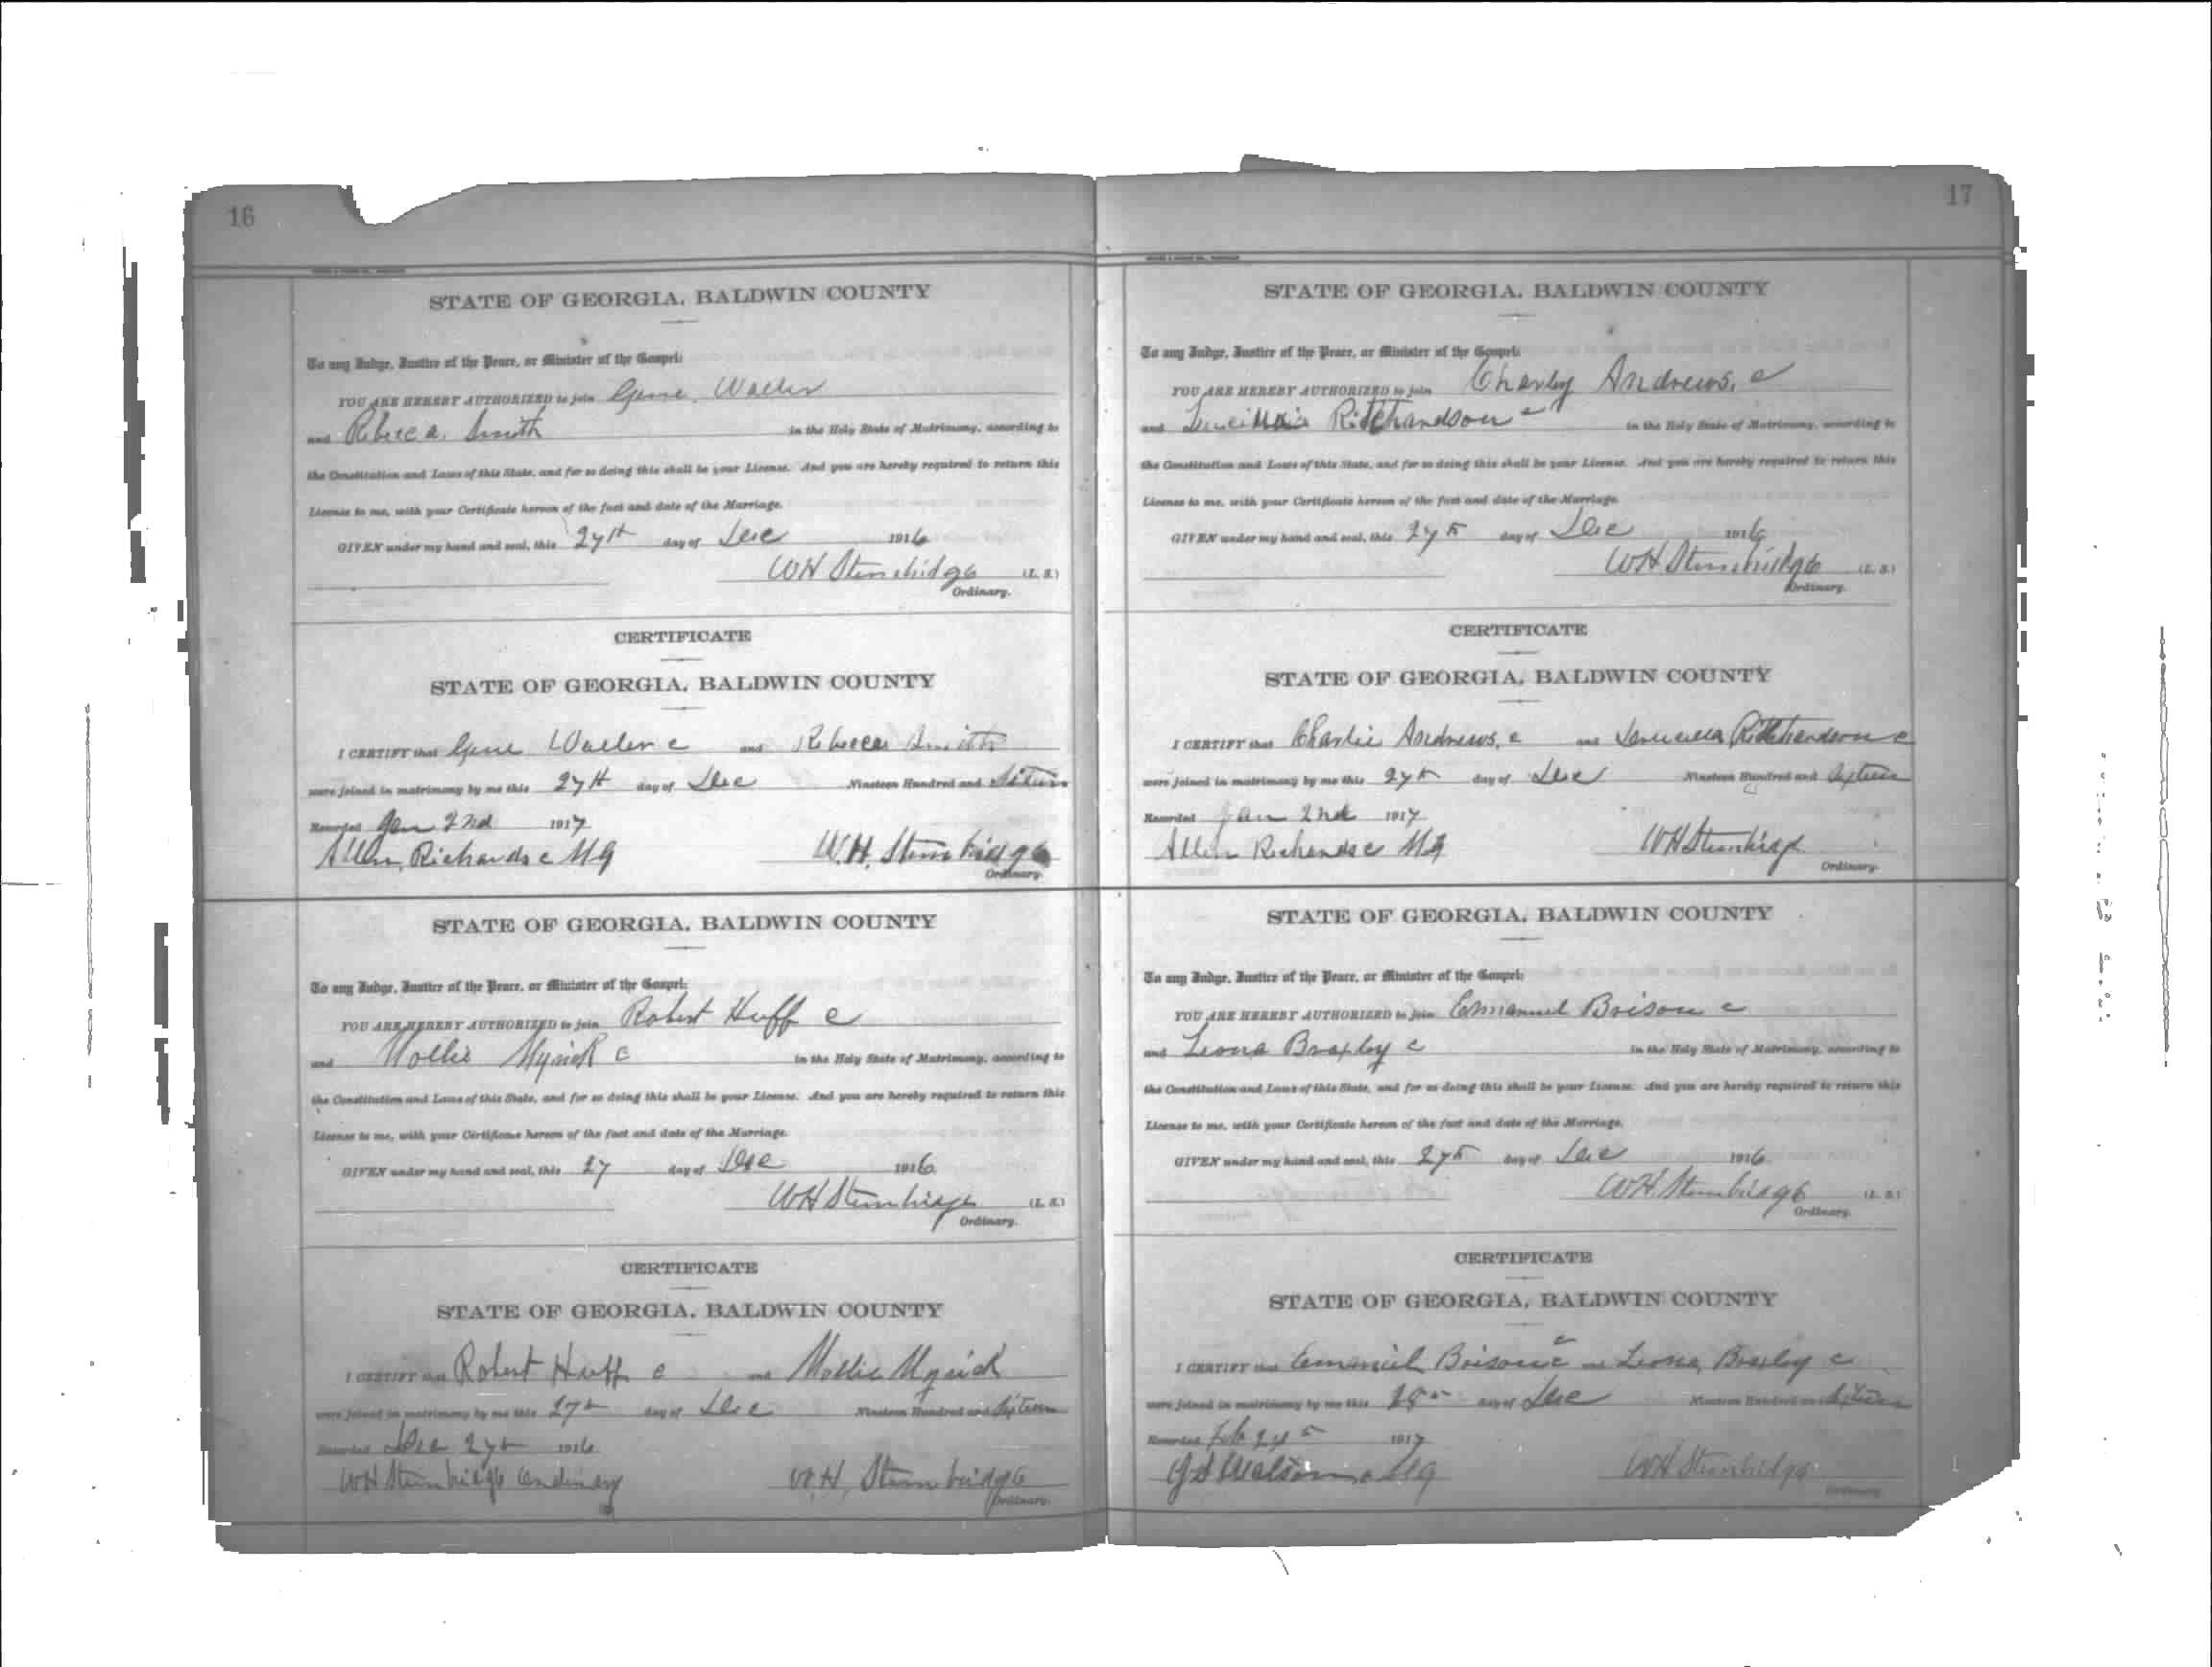 16
STATE OF GEORGIA, BALDWIN COUNTY
To any Judge, Justice of the Peace, or Minister of the Gospel:
YOU ARE HEREBY AUTHORIZED to join Gene Waller
and Rebecca Smith in the Holy State of Matrimony, according to
the Constitution and Laws of this State, and for so doing this shall be your License. And you are hereby required to return this
License to me, with your Certificate hereon of the fact and date of the Marriage.
GIVEN under my hand and seal, this 27th day of Dec 1916
WH Stembridge (L. S.)
Ordinary.
CERTIFICATE
STATE OF GEORGIA, BALDWIN COUNTY
I CERTIFY that Gene Waller c and Rebecca Smith
were joined in matrimony by me this 27th day of Dec Nineteen Hundred and Sixteen
Recorded Jan 2nd 1917
Allen Richards c MG W.H. Stembridge
Ordinary.
STATE OF GEORGIA, BALDWIN COUNTY
To any Judge, Justice of the Peace, or Minister of the Gospel:
YOU ARE HEREBY AUTHORIZED to join Robert Huff c
and Mollie Myrick c in the Holy State of Matrimony, according to
the Constitution and Laws of this State, and for so doing this shall be your License. And you are hereby required to return this
License to me, with your Certificate hereon of the fact and date of the Marriage.
GIVEN under my hand and seal, this 27 day of Dec 1916
WH Stembridge (L. S.)
Ordinary.
CERTIFICATE
STATE OF GEORGIA, BALDWIN COUNTY
I CERTIFY that Robert Huff c and Mollie Myrick
were joined in matrimony by me this 27th day of Dec Nineteen Hundred and Sixteen
Recorded Dec 27th 1916
WH Stembridge Ordinary W.H. Stembridge
Ordinary.
17
STATE OF GEORGIA, BALDWIN COUNTY
To any Judge, Justice of the Peace, or Minister of the Gospel:
YOU ARE HEREBY AUTHORIZED to join Charly Andrews, c
and Ritchandson c in the Holy State of Matrimony, according to
the Constitution and Laws of this State, and for so doing this shall be your License. And you are hereby required to return this
License to me, with your Certificate hereon of the fact and date of the Marriage.
GIVEN under my hand and seal, this 27th day of Dec 1916
WH Stembridge (L. S.)
Ordinary.
CERTIFICATE
STATE OF GEORGIA, BALDWIN COUNTY
I CERTIFY that Charlie Andrews, c and c
were joined in matrimony by me this 27th day of Dec Nineteen Hundred and Sixteen
Recorded Jan 2nd 1917
Allen Richards c MG WH Stembridge
Ordinary.
STATE OF GEORGIA, BALDWIN COUNTY
To any Judge, Justice of the Peace, or Minister of the Gospel:
YOU ARE HEREBY AUTHORIZED to join Emanuel Boison c
and Leona Braxley c in the Holy State of Matrimony, according to
the Constitution and Laws of this State, and for so doing this shall be your License. And you are hereby required to return this
License to me, with your Certificate hereon of the fact and date of the Marriage.
GIVEN under my hand and seal, this 27th day of Dec 1916
WH Stembridge (L. S.)
Ordinary.
CERTIFICATE
STATE OF GEORGIA, BALDWIN COUNTY
I CERTIFY that Emanuel Boison c and Leona Braxley c
were joined in matrimony by me this day of Dec Nineteen Hundred and Sixteen
Recorded Feb 24 1917
MG WH Stembridge
Ordinary.